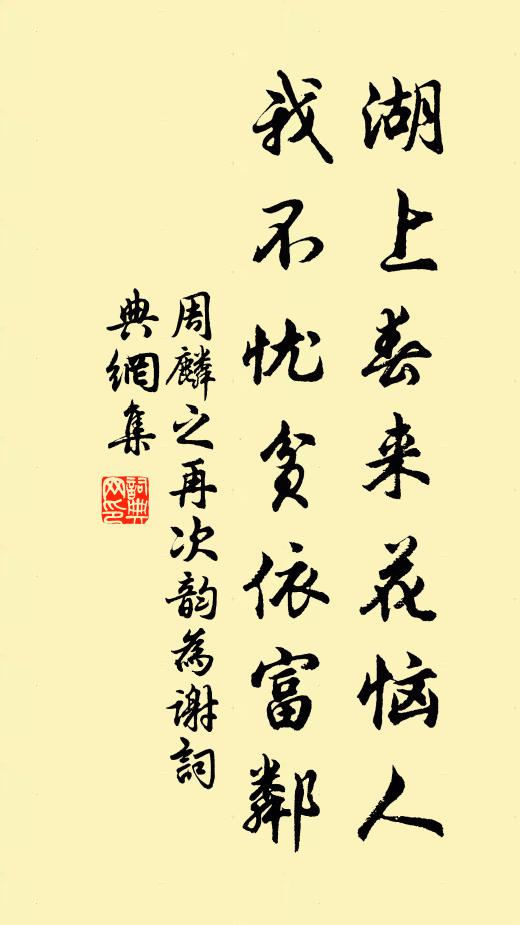 湖上春来花恼人
我不忧贫依富鄰
周麟之再次韵為谢詞
典網集
詞典网印